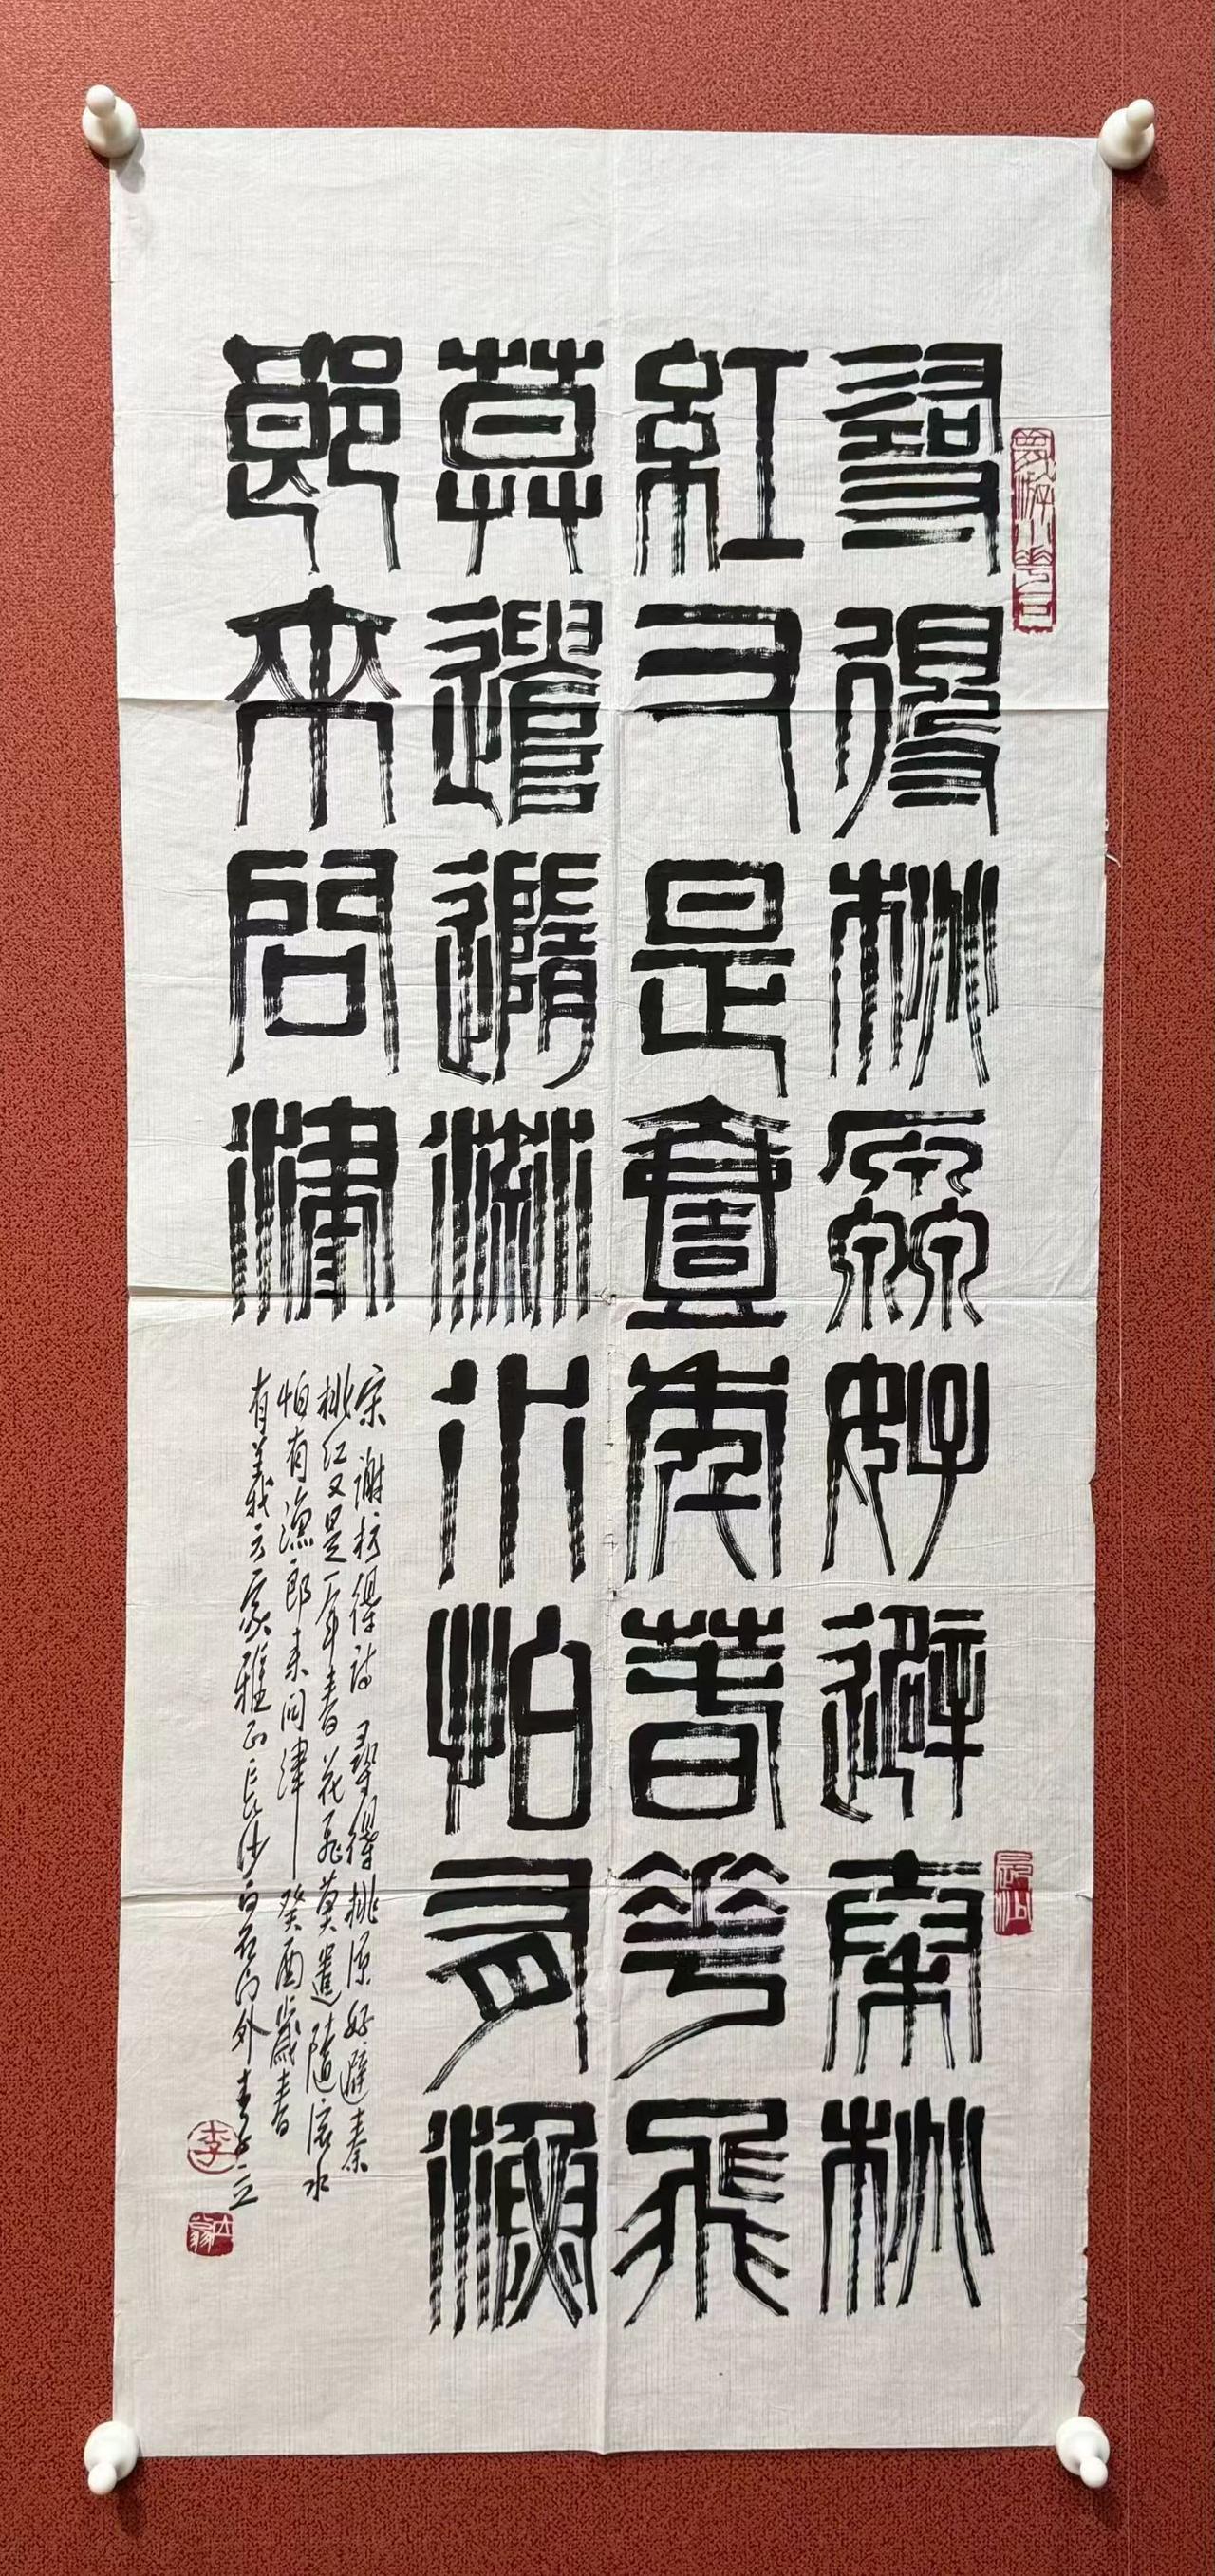 尋得桃源好避秦桃
紅又是壹年春花飛
莫遣隨流水怕有漁
郎來問津
宋 謝枋得詩 尋得桃源好避秦
桃红又是一年春花飛莫遣隨流水
怕有漁郎来问津 癸酉歲春
有義方家雅正長沙白石门外李立
李